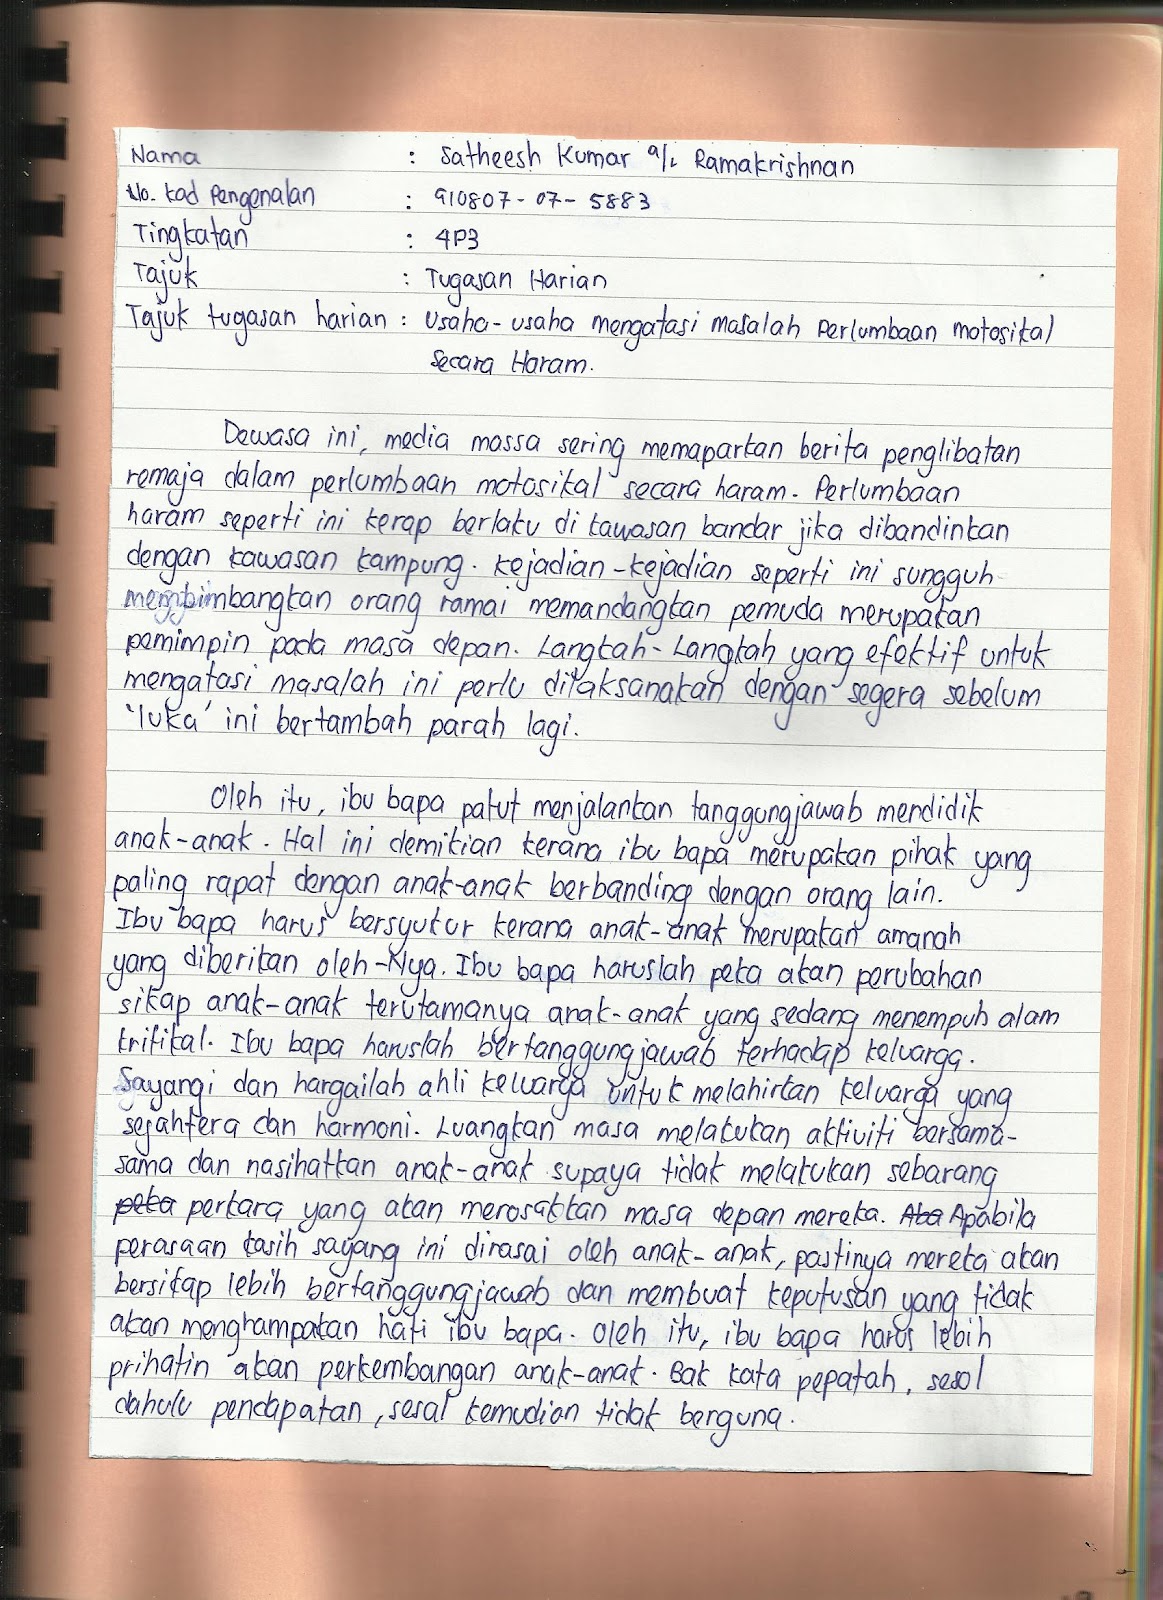 Nama : Satheesh Kumar a/L Ramakrishnan
No. Kad Pengenalan : 910807-07-5883
Tingkatan : 4P3
Tajuk : Tugasan Harian
Tajuk tugasan harian : Usaha-usaha mengatasi masalah Perlumbaan motosikal
Secara Haram.
Dewasa ini, media massa sering memaparkan berita penglibatan
remaja dalam perlumbaan motosikal secara haram. Perlumbaan
haram seperti ini kerap berlaku di kawasan bandar jika dibandinkan
dengan kawasan kampung. Kejadian-kejadian seperti ini sungguh
membimbangkan orang ramai memandangkan pemuda merupakan
pemimpin pada masa depan. Langkah-Langkah yang efektif untuk
mengatasi masalah ini perlu dilaksanakan dengan segera sebelum
'luka' ini bertambah parah lagi.
Oleh itu, ibu bapa patut menjalankan tanggungjawab mendidik
anak-anak. Hal ini demikian kerana ibu bapa merupakan pihak yang
paling rapat dengan anak-anak berbanding dengan orang lain.
Ibu bapa harus bersyukur kerana anak-anak merupakan amanah
yang diberikan oleh-Nya. Ibu bapa haruslah peka akan perubahan
sikap anak-anak terutamanya anak-anak yang sedang menempuh alam
kritikal. Ibu bapa haruslah bertanggungjawab terhadap keluarga.
Sayangi dan hargailah ahli keluarga untuk melahirkan keluarga yang
sejahtera dan harmoni. Luangkan masa melakukan aktiviti bersama-
sama dan nasihatkan anak-anak supaya tidak melakukan sebarang
peka perkara yang akan merosakkan masa depan mereka. Aba Apabila
perasaan kasih sayang ini dirasai oleh anak-anak, pastinya mereka akan
bersikap lebih bertanggungjawab dan membuat keputusan yang tidak
akan menghampakan hati ibu bapa. Oleh itu, ibu bapa harus lebih
prihatin akan perkembangan anak-anak. Bak kata pepatah, sesal
dahulu pendapatan, sesal kemudian tidak berguna.